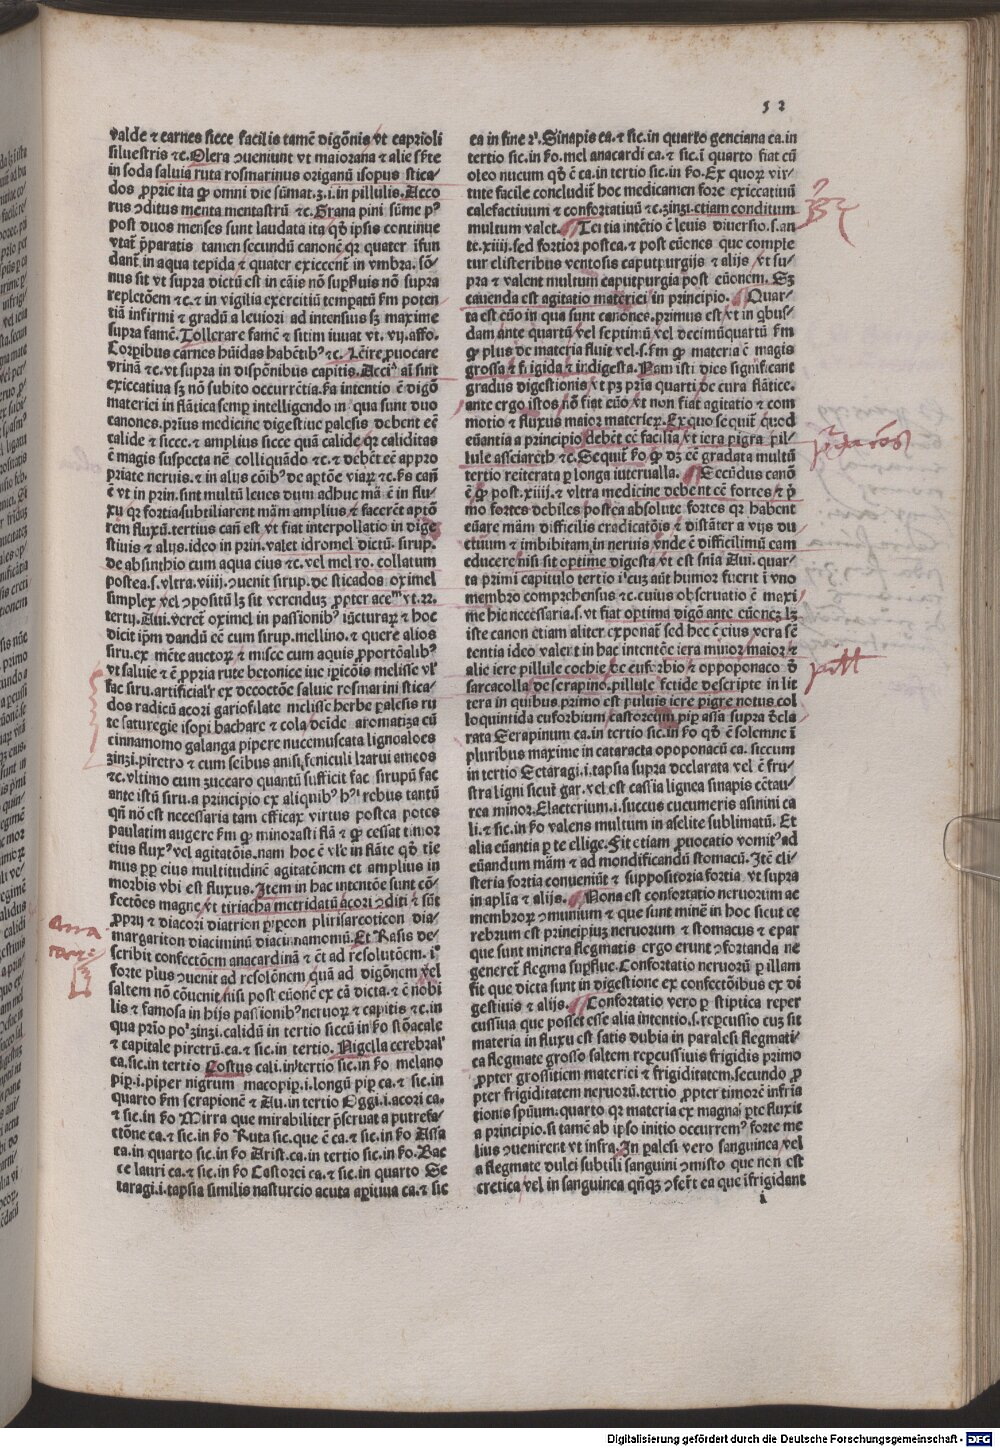 52
valde ⁊ carnes sicce facilis tamē digōnis vt caprioli
siluestris ⁊c. Olera ↄueniunt vt maiorana ⁊ alie sꝉte
in soda saluia ruta rosmarinus origanū isopus stica⸗
dos ꝓprie ita ꝙ omni die sūmat.ʒ.i.in pillulis. Acco
rus ↄditus menta mentastrū ⁊c. Grana pini sūme pꝰ
post duos menses sunt laudata ita ꝙ ipsis continue
vtat᷑ p̄paratis tamen secundū canonē qꝛ quater īfun
dant᷑ in aqua tepida ⁊ quater exiccent᷑ in vmbra. sō⸗
nus sit vt supra dictū est in cāis nō suꝑfluis nō supra
repletōem ⁊c. ⁊ in vigilia exercitiū tempatū ẜm poten
tiā infirmi ⁊ gradū a leuiori ad intensius sꝫ maxime
supra famē. Tollerare famē ⁊ sitim iuuat vt.vij.affo.
Corꝑibus carnes hūidas habētibꝰ ⁊c. Lēire ꝓuocare
vrinā ⁊c. vt supra in dispōnibus capitis. Acciᵃ aūt sunt
exiccatiua sꝫ nō subito occurrētia. ẜa intentio ē digō
materiei in flātica semꝑ intelligendo in qua sunt duo
canones. prius medicine digestiue palesis debent eē
calide ⁊ sicce. ⁊ amplius sicce quā calide qꝛ caliditas
ē magis suspecta nē colliquādo ⁊c. ⁊ debēt eē appro
priate neruis. ⁊ in alijs cōibꝰ de aptōne viaꝝ ⁊c. ẜs canō
ē vt in prin. sint multū leues dum adhuc mā ē in flu⸗
xu qꝛ fortia subtiliarent mām amplius ⁊ facerēt aptō
rem fluxū. tertius canō est vt fiat interpollatio in dige
stiuis ⁊ alijs. ideo in prin. valet idromel dictū. sirup.
de absinthio cum aqua eius ⁊c. vel mel ro. collatum
postea.s.vltra.viiij.ↄuenit sirup. de sticados oximel
simplex vel ↄpositū lꝫ sit verendū ꝓpter aceᵐ vt.22.
tertij. Aui. veret᷑ oximel in passionibꝰ iūcturaꝝ ⁊ hoc
dicit ipm dandū eē cum sirup. mellino. ⁊ quere alios
siru. ex mēte auctoꝝ ⁊ misce cum aquis ꝓportōalibꝰ
vt saluie ⁊ ē ꝓpria rute betonice iue ipicōis melisse vl᷑
fac siru. artificialr̄ ex decoctōe saluie rosmarini stica⸗
dos radicū acori gariofilate melisse herbe palesis ru
te saturegie isopi bachare ⁊ cola deīde aromatiza cū
cinnamomo galanga pipere nucemuscata lignoaloes
zinzi. piretro ⁊ cum scibus anisi feniculi
⁊c. vltimo cum zuccaro quantū sufficit fac sirupū fac
ante istū siru. a principio ex aliquibꝰ hꝰi rebus tantū
qn̄ nō est necessaria tam efficax virtus postea potes
paulatim augere ẜm ꝙ minorasti flā ⁊ ꝙ cessat timor
eius fluxꝰ vel agitatōis. nam hoc ē vl᷑e in flāte qd̄ tie
mus ꝓpꝑ eius multitudinē agitatōnem et amplius in
morbis vbi est fluxus. Item in hac intentōe sunt cō⸗
fectōes magne vt tiriacha metridatū acori ↄditi ⁊ sūt
ꝓprij ⁊ diacori diatrion pipeon plirisarcoticon dia⸗
margariton diaciminū diacinnamomū. Et Rasis de⸗
scribit confectōem anacardinā ⁊ ēt ad resolutōem. ī
forte plus ↄuenit ad resolōnem quā ad digōnem vel
saltem nō cōuenit nisi post cūonē ex cā dicta. ⁊ ē nobi
lis ⁊ famosa in hijs passionibꝰ neruoꝝ ⁊ capitis ⁊c. in
qua prīo poꝰ zinzi. calidū in tertio siccū in ẜo stōacale
⁊ capitale piretrū. ca. ⁊ sic. in tertio. Nigella cerebralꝰ
ca. sic. in tertio Costus cali. in tertio sic. in ẜo melano
piꝑ.i.piper nigrum macopiꝑ.i.longū piꝑ ca. ⁊ sic. in
quarto ẜm serapionē ⁊ Au. in tertio Oggi.i.acori ca.
⁊ sic. in ẜo Mirra que mirabiliter p̄seruat a putrefa⸗
ctōne ca. ⁊ sic. in ẜo Ruta sic. que ē ca. ⁊ sic. in ẜo Assa
ca. in quarto sic. in ẜo Arist. ca. in tertio sic. in ẜo. Bac
ce lauri ca. ⁊ sic. in ẜo Castorei ca. ⁊ sic. in quarto Se
taragi.i.tapsia similis nasturcio acuta apitiua ca. ⁊ sic
ea in fine 2ⁱ. Sinapis ca. ⁊ sic. in quarto genciana ca. in
tertio sic. in ẜo. mel anacardi ca. ⁊ sic. ī quarto fiat cū
oleo nucum qd̄ ē ca. in tertio sic. in ẜo. Ex quoꝝ vir⸗
tute facile concludit᷑ hoc medicamen fore exiccatiuū
calefactiuum ⁊ confortatiuū ⁊c. zinzi. etiam conditum
multum valet. Tertia intētio ē leuis diuersio.s.an
te.xiiij. sed fortior postea. ⁊ post cūones que comple
tur clisteribus ventosis caputpurgijs ⁊ alijs vt su⸗
pra ⁊ valent multum caputpurgia post cūonem. Sꝫ
cauenda est agitatio materiei in principio. Quar⸗
ta est cūo in qua sunt canones. primus est vt in qbus⸗
dam ante quartū vel septimū vel decimūquartū ẜm
ꝙ plus de materia fluit vel.s.ẜm ꝙ materia ē magis
grossa ⁊ frigida ⁊ indigesta. Nam isti dies significant
gradus digestionis vt pꝫ pria quarti de cura flātice.
ante ergo istos nō fiat cūo vt non fiat agitatio ⁊ com
motio ⁊ fluxus maior materieꝝ. Ex quo sequit᷑ quod
cūantia a principio debēt eē facilia vt iera pigra pil⸗
lule assciareth ⁊c. Sequit᷑ ẜo ꝙ dꝫ eē gradata multū
tertio reiterata p longa interualla. Secūdus canō
ē ꝙ post.xiiij. ⁊ vltra medicine debent eē fortes ⁊ p̄
mo fortes debiles postea absolute fortes qꝛ habent
cūare mām difficilis eradicatōis ⁊ distāter a vijs du
ctiuum ⁊ imbibitam in neruis vnde ē difficilimū eam
educere nisi sit optime digesta vt est snīa Aui. quar⸗
ta primi capitulo tertio īᵃ cuʒ aūt humor fuerit ī vno
membro comprehensus ⁊c. cuius obseruatio ē maxi⸗
me hic necessaria.s.vt fiat optima digō ante cūonez lꝫ
iste canon etiam aliter exponat᷑ sed hec ē eius vera sē
tentia ideo valent in hac intentōe iera minor maior ⁊
alie iere pillule cochie de euforbio ⁊ oppoponaco ꝺ
sarcacolla de serapino. pillule fetide descripte in lit
tera in quibus primo est puluis iere pigre notus col
loquintida euforbium castoreum piꝑ assa supra decla
rata Serapinum ca. in tertio sic. in ẜo qd̄ ē solemne ī
pluribus maxime in cataracta opoponacū ca. siccum
in tertio Setaragi.i.tapsia supra declarata vel ē fru⸗
stra ligni sicut gar. vel est cassia lignea sinapis cētau⸗
rea minor. Elacterium.i.succus cucumeris asinini ca
li. ⁊ sic. in ẜo valens multum in aselite sublimatū. Et
alia cūantia p te ellige. Fit etiam ꝓuocatio vomitꝰ ad
cūandum mām ⁊ ad mondificandū stomacū. Itē cli⸗
steria fortia conueniūt ⁊ suppositoria fortia vt supra
in aplia ⁊ alijs. Nona est confortatio neruorum ac
membroꝝ ↄmunium ⁊ que sunt minē in hoc sicut ce
rebrum est principiuʒ neruorum ⁊ stomacus ⁊ epar
que sunt minera flegmatis ergo erunt ↄfortanda ne
gereret᷑ flegma suꝑflue. Confortatio neruorū p illam
fit que dicta sunt in digestione ex confectōibus ex di
gestiuis ⁊ alijs. Confortatio vero p stiptica reper
cussiua que posset esse alia intentio.s.reꝑcussio cuʒ sit
materia in fluxu est satis dubia in paralesi flegmati⸗
ca flegmate grosso saltem reꝑcussiuis frigidis primo
ꝓpter grossitiem materiei ⁊ frigiditatem. secundo ꝓ
pter frigiditatem neruorū. tertio ꝓpter timorē infria
tionis spūum. quarto qꝛ materia ex magna pte fluxit
a principio. si tamē ab ipso initio occurrem᷑ forte me
lius ↄuenirent vt infra. In palesi vero sanguinea vel
a flegmate dulci subtili sanguini ↄmisto que non est
cretica vel in sanguinea qn̄qꝫ ↄfert ea que īfrigidant
i
Digitalisierung gefördert durch die Deutsche Forschungsgemeinschaft - DFG